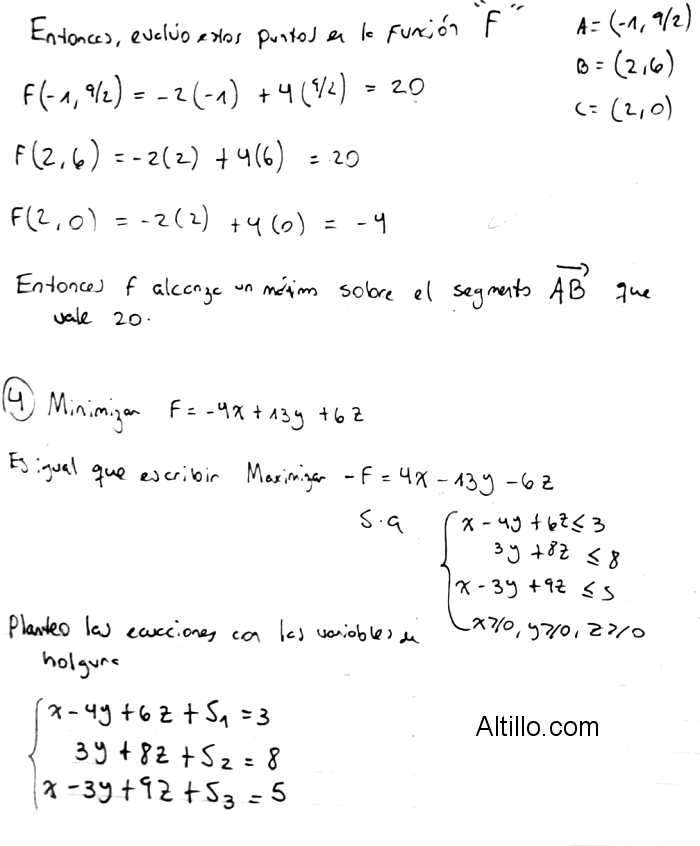 Entonces, evalúo estos puntos en la función "F"
A = (-1, 9/2)
B = (2,6)
C = (2,0)
F(-1, 9/2) = -2(-1) + 4(9/2) = 20
F(2,6) = -2(2) + 4(6) = 20
F(2,0) = -2(2) + 4(0) = -4
Entonces f alcanza un máximo sobre el segmento AB que
vale 20.
4 Minimizar F = -4x + 13y + 6z
Es igual que escribir Maximizar -F = 4x - 13y - 6z
S.a
x - 4y + 6z ≤ 3
3y + 8z ≤ 8
x - 3y + 9z ≤ 5
x≥0, y≥0, z≥0
Planteo las ecuaciones con las variables de
holgura
x - 4y + 6z + S₁ = 3
3y + 8z + S₂ = 8
x - 3y + 9z + S₃ = 5
Altillo.com